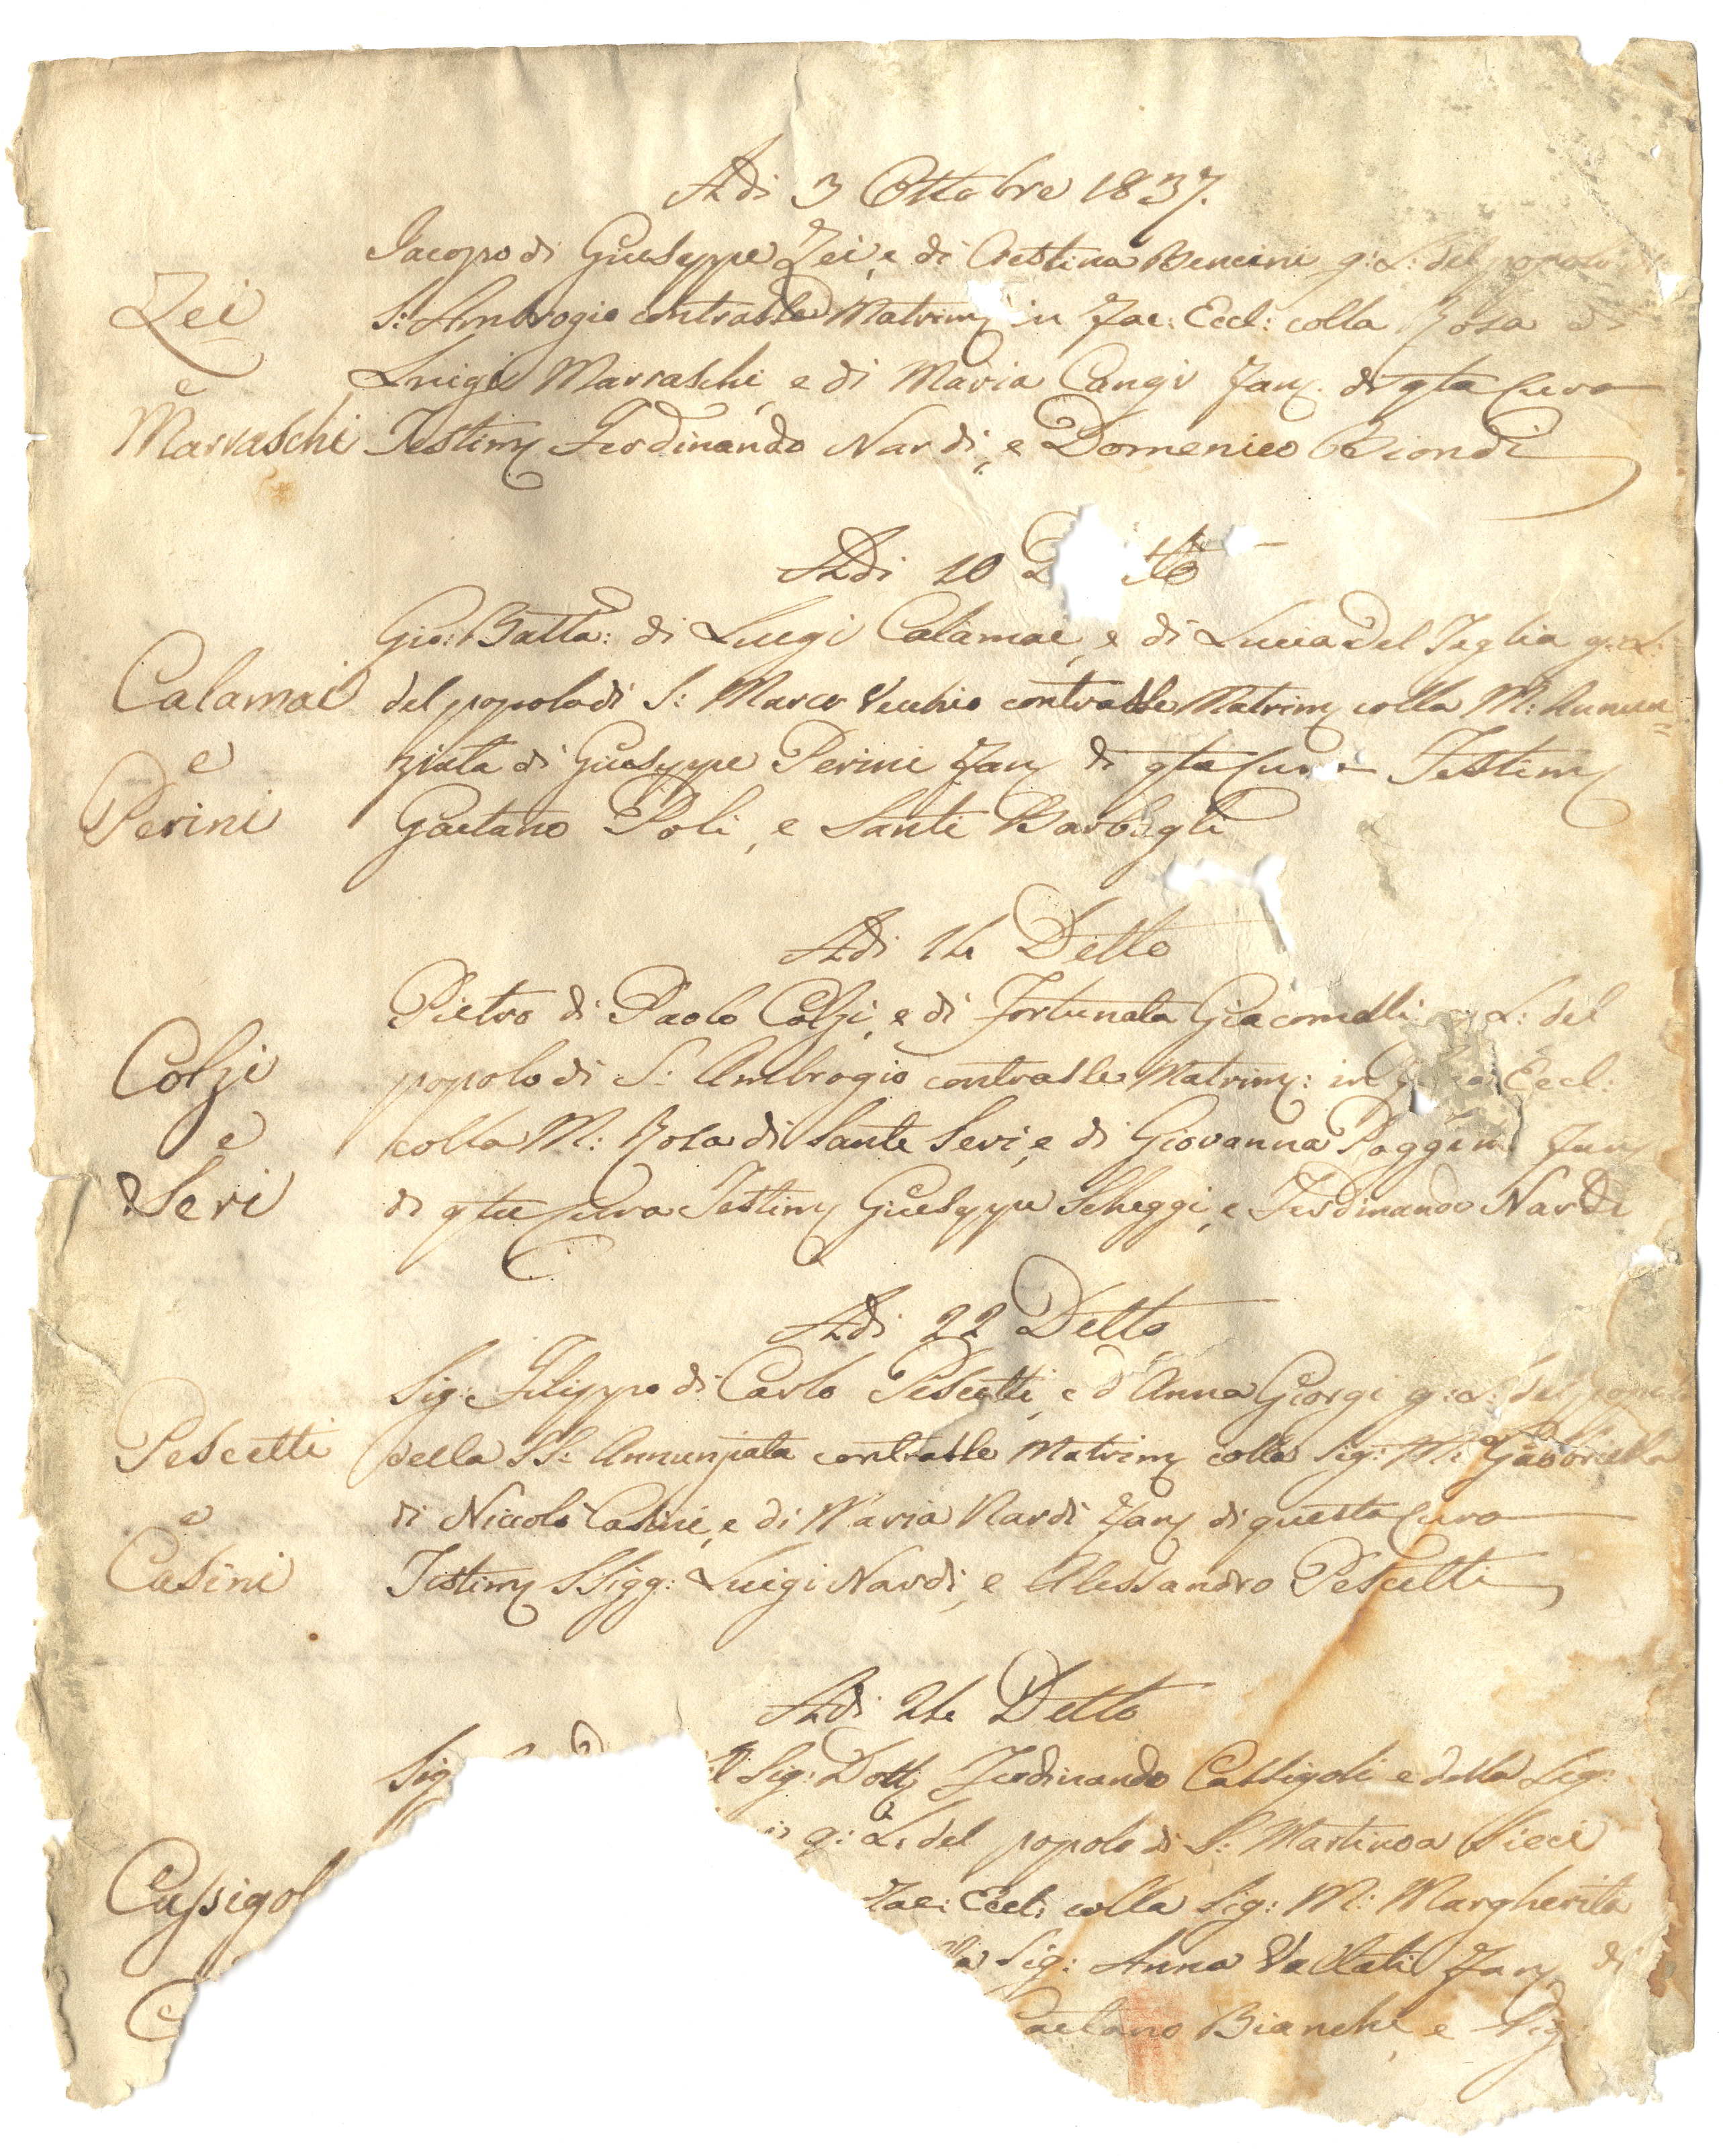 Adi 3 Ottobre 1837.
Jacopo di Giuseppe Zei, e di Cristina Bencini g: L: del popolo
Zei
S: Ambrogio contrasse Matrim in Fac: Eccl: colla Rosa di
e
Luigi Marraschi, e di Maria Cangi Fan. di qta Cura
Marraschi
Testim Ferdinando Nardi, e Domenico Biondi
Adi 10 D tto
Gio: Batta: di Luigi Calamai, e di Lucia Del Taglia g: L:
Calamai
del popolo di S: Marco Vecchio contrasse Matrim colla M: Annun=
e
ziata di Giuseppe Perini Fan di qta Cura Testim
Perini
Gaetano Poli, e Santi Barbagli
Adi 14 Detto
Pietro di Paolo Colzi, e di Fortunata Giacomelli L: del
Colzi
popolo di S: Ambrogio contrasse Matrim: in Eccl:
e
colla M: Rosa di Sante Seri, e di Giovanna Poggini Fan
Seri
di qta Cura Testim Giuseppe Scheggi, e Ferdinando Nardi
Adi 22 Detto
Sig: Filippo di Carlo Pescetti, e d'Anna Giorgi g: L: del popo
Pescetti
della SS: Annunziata contrasse Matrim colla Sig: M: Gaboriella
e
di Niccolò Casini, e di Maria Nardi Fan di questa Cura
Casini
Testim SSigg: Luigi Nardi, e Alessandro Pescetti
Adi 24 Detto
Sig l Sig: Dott Ferdinando Cassigoli e della Sig:
g: L: del popolo di S: Martino a Sieci
Cassigol
Fac: Eccl: colla Sig: M: Margherita
la Sig: Anna Vallati Fan di
C
aetano Bianchi, e Sig: